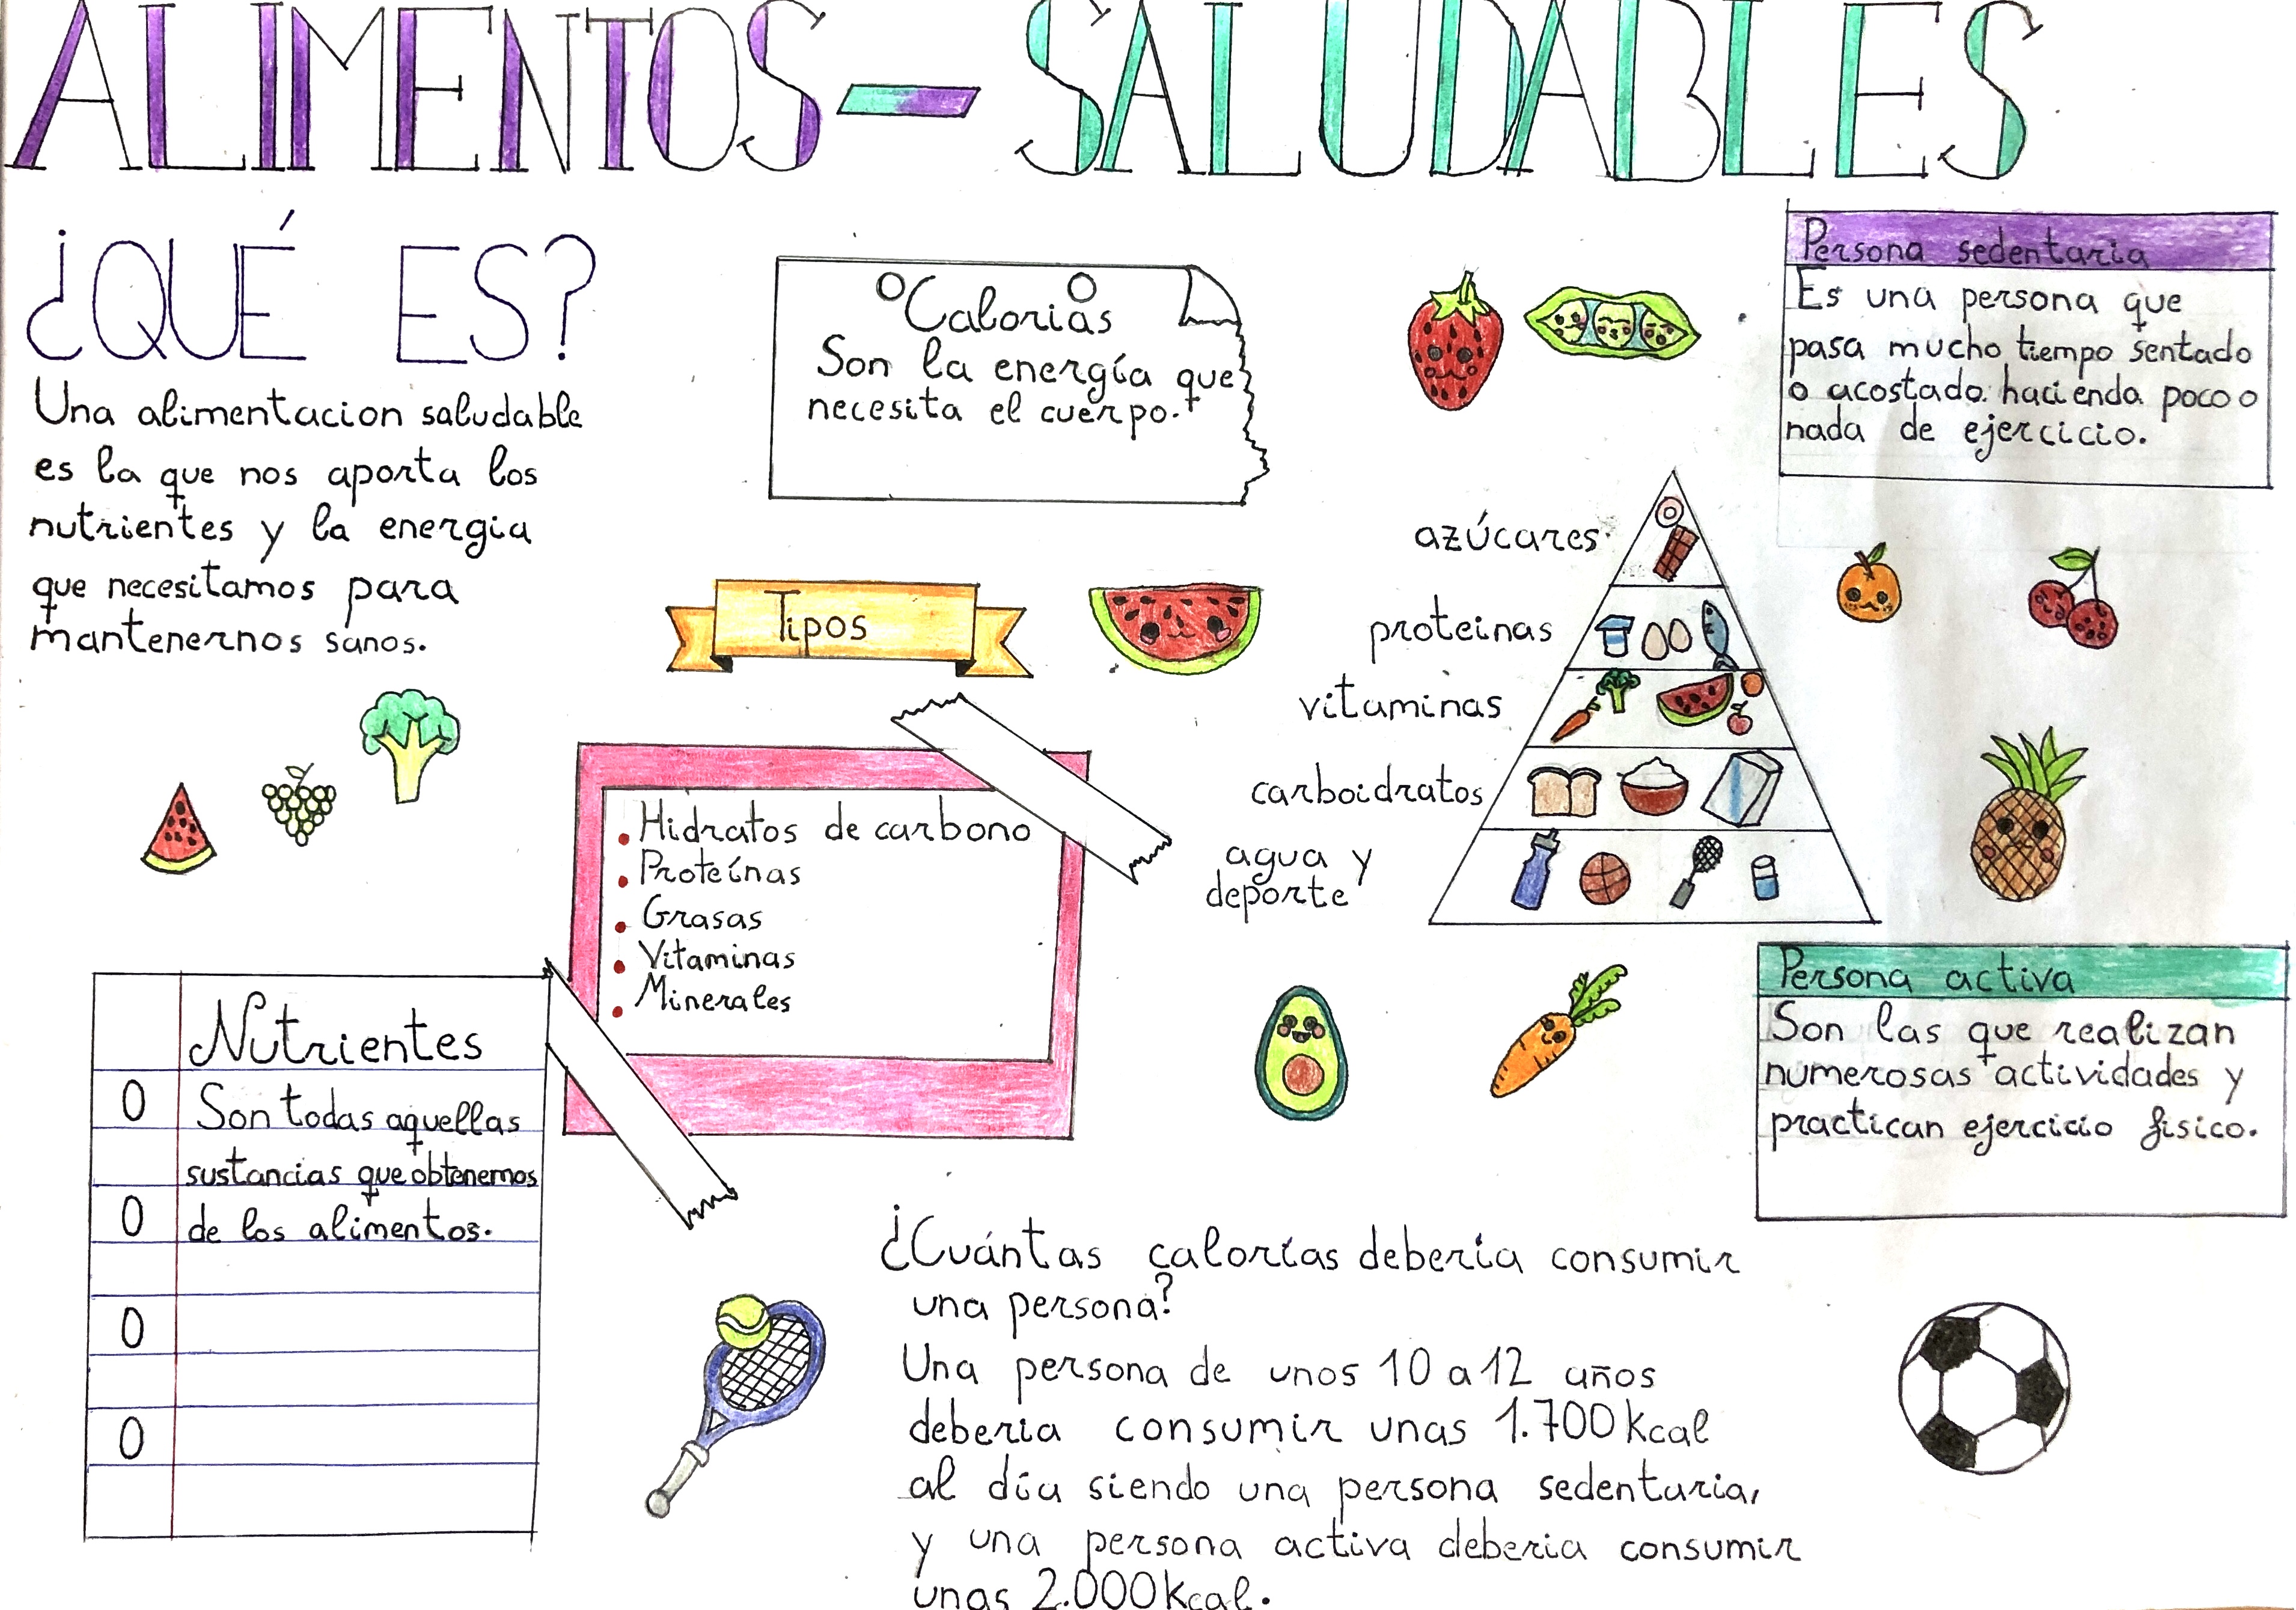 ALIMENTOS - SALUDABLES
¿QUÉ ES?
Una alimentacion saludable
es la que nos aporta los
nutrientes y la energia
que necesitamos para
mantenernos sanos.
Calorías
Son la energía que
necesita el cuerpo.
Persona sedentaria
Es una persona que
pasa mucho tiempo sentado
o acostado hacienda poco o
nada de ejercicio.
Tipos
Hidratos de carbono
Proteínas
Grasas
Vitaminas
Minerales
azúcares
proteinas
vitaminas
carboidratos
agua y
deporte
Nutrientes
Son todas aquellas
sustancias que obtenemos
de los alimentos.
Persona activa
Son las que realizan
numerosas actividades y
practican ejercicio fisico.
¿Cuántas calorías deberia consumir
una persona?
Una persona de unos 10 a 12 años
deberia consumir unas 1.700 kcal
al día siendo una persona sedentaria,
y una persona activa deberia consumir
unas 2.000 kcal.